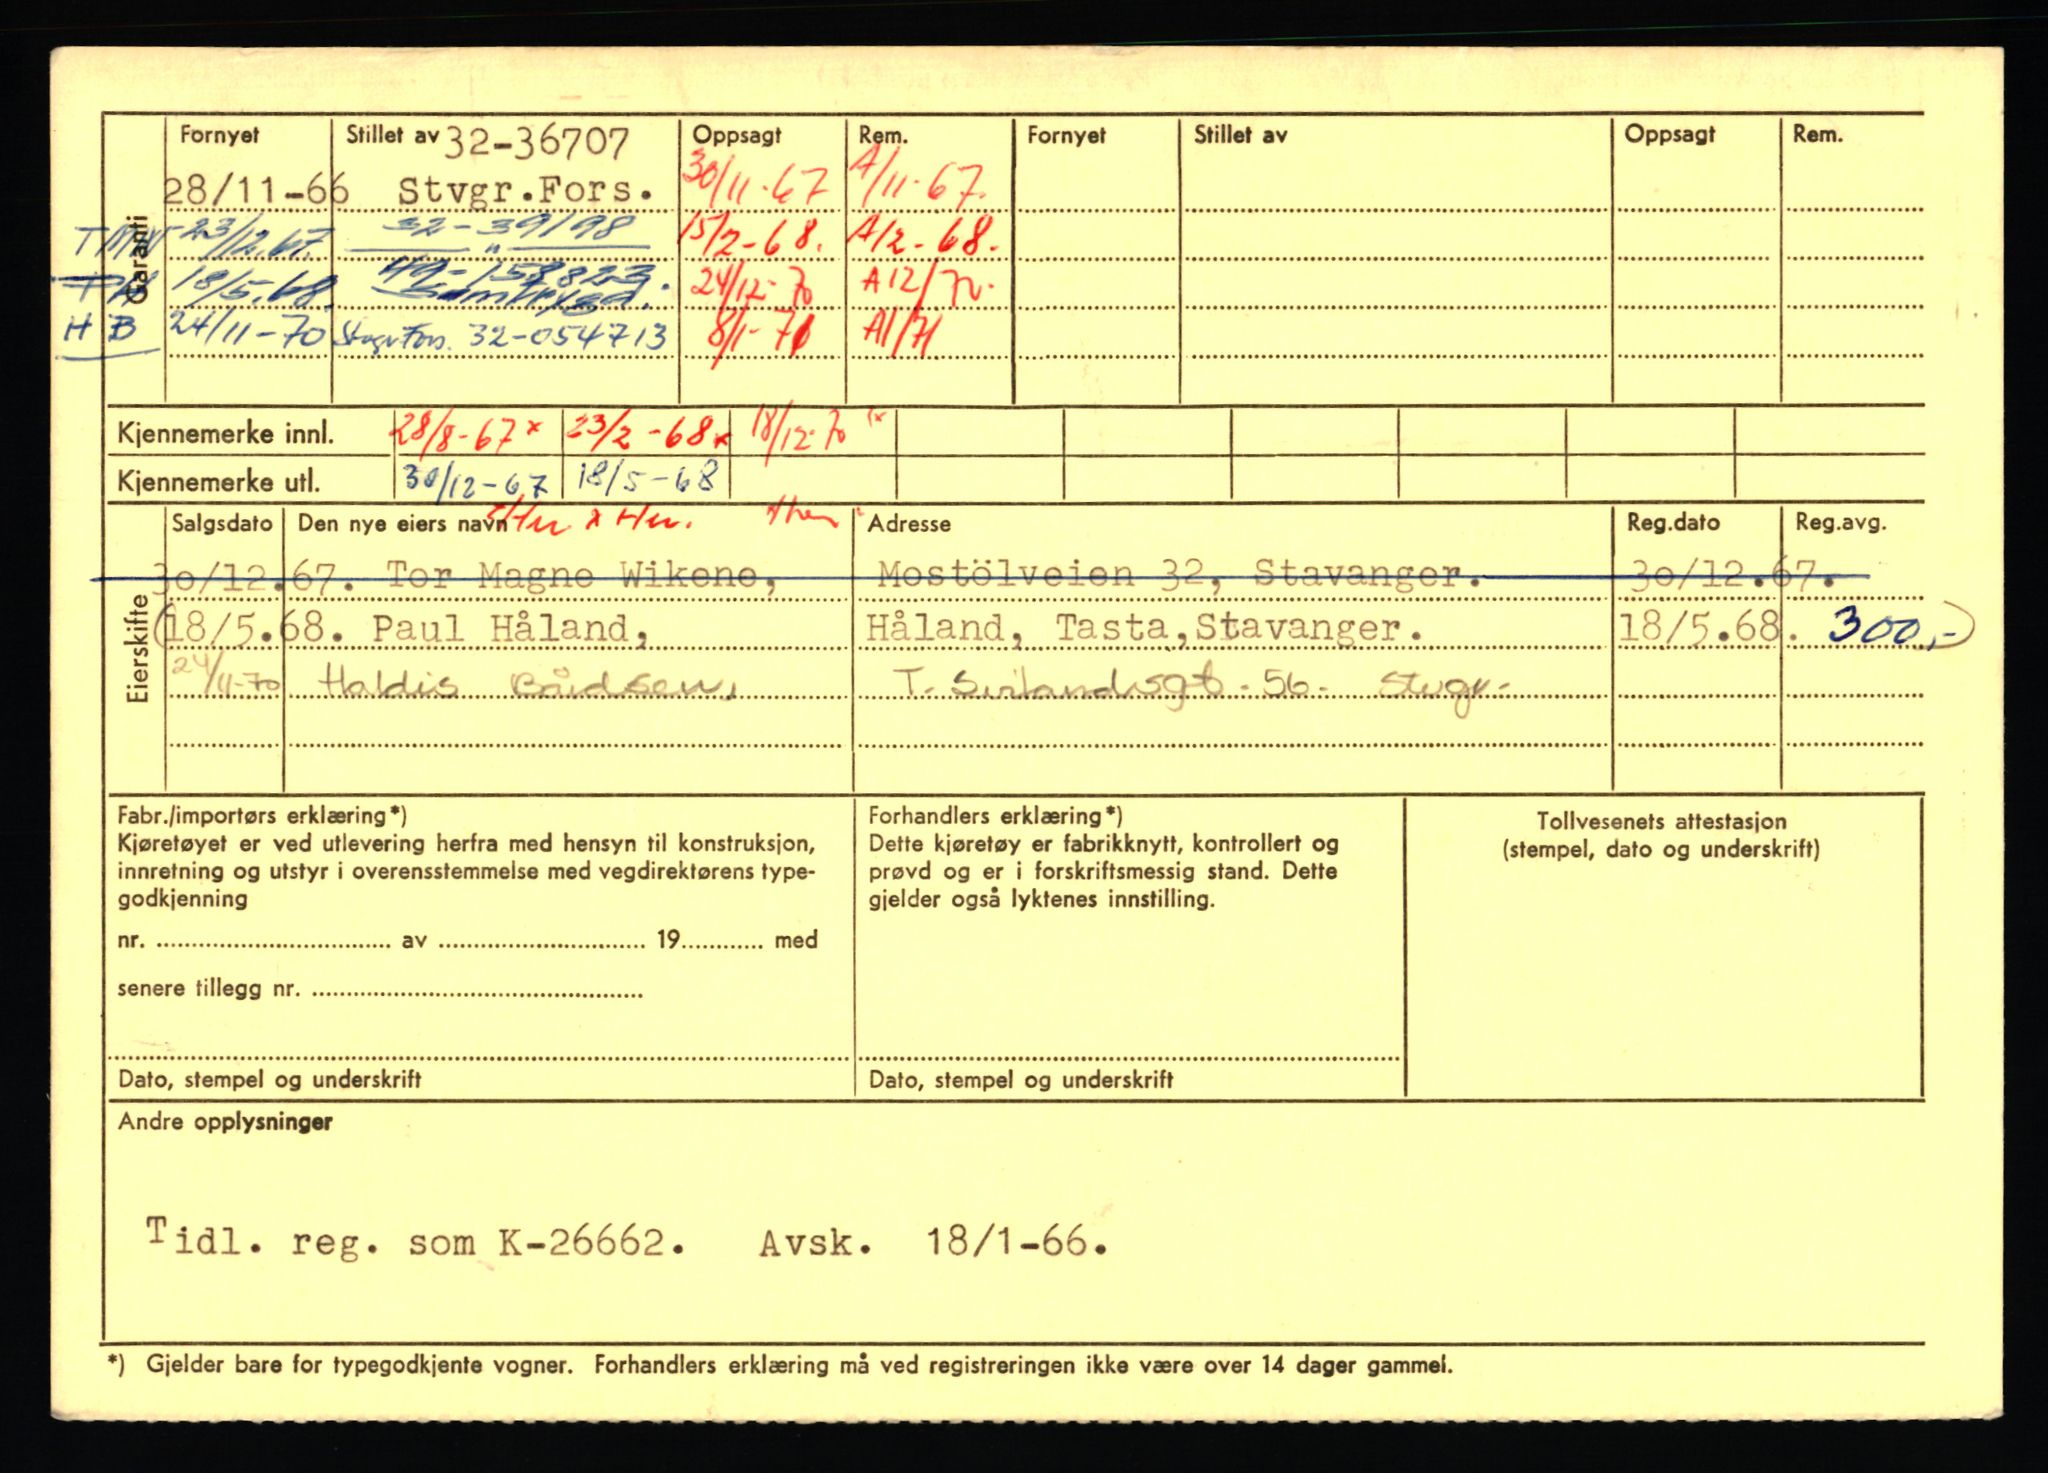 Fornyet Stillet av 32-36707 Oppsagt Rem. Fornyet Stillet av Oppsagt Rem.
28/11-66 Stvgr.Fors. 30/11-67 A/11-67.
Garanti
23/12.67. 32-39198 15/2-68. A/2-68.
18/5.68. 49-158823. Samtrygd. 24/12-70 A12/70.
HB 24/11-70 Stvgr Fors. 32-054713 8/1-71 A1/71
Kjennemerke innl. 28/8-67 x 23/2-68 x 18/12-70 x
Kjennemerke utl. 30/12-67 18/5-68
Eierskifte
Salgsdato Den nye eiers navn x Adresse Reg.dato Reg.avg.
30/12.67. Tor Magne Wikene, Mostölveien 32, Stavanger. 30/12.67.
(18/5.68. Paul Håland, Håland, Tasta, Stavanger. 18/5.68. 300,-)
24/11-70 Haldis Bårdsen, T. 56. Stvgr.
Fabr./importørs erklæring*)
Kjøretøyet er ved utlevering herfra med hensyn til konstruksjon,
innretning og utstyr i overensstemmelse med vegdirektørens type-
godkjenning
nr. .......... av .......... 19.......... med
senere tillegg nr. ..........
Dato, stempel og underskrift
Forhandlers erklæring*)
Dette kjøretøy er fabrikknytt, kontrollert og
prøvd og er i forskriftsmessig stand. Dette
gjelder også lyktenes innstilling.
Dato, stempel og underskrift
Tollvesenets attestasjon
(stempel, dato og underskrift)
Andre opplysninger
Tidl. reg. som K-26662. Avsk. 18/1-66.
*) Gjelder bare for typegodkjente vogner. Forhandlers erklæring må ved registreringen ikke være over 14 dager gammel.